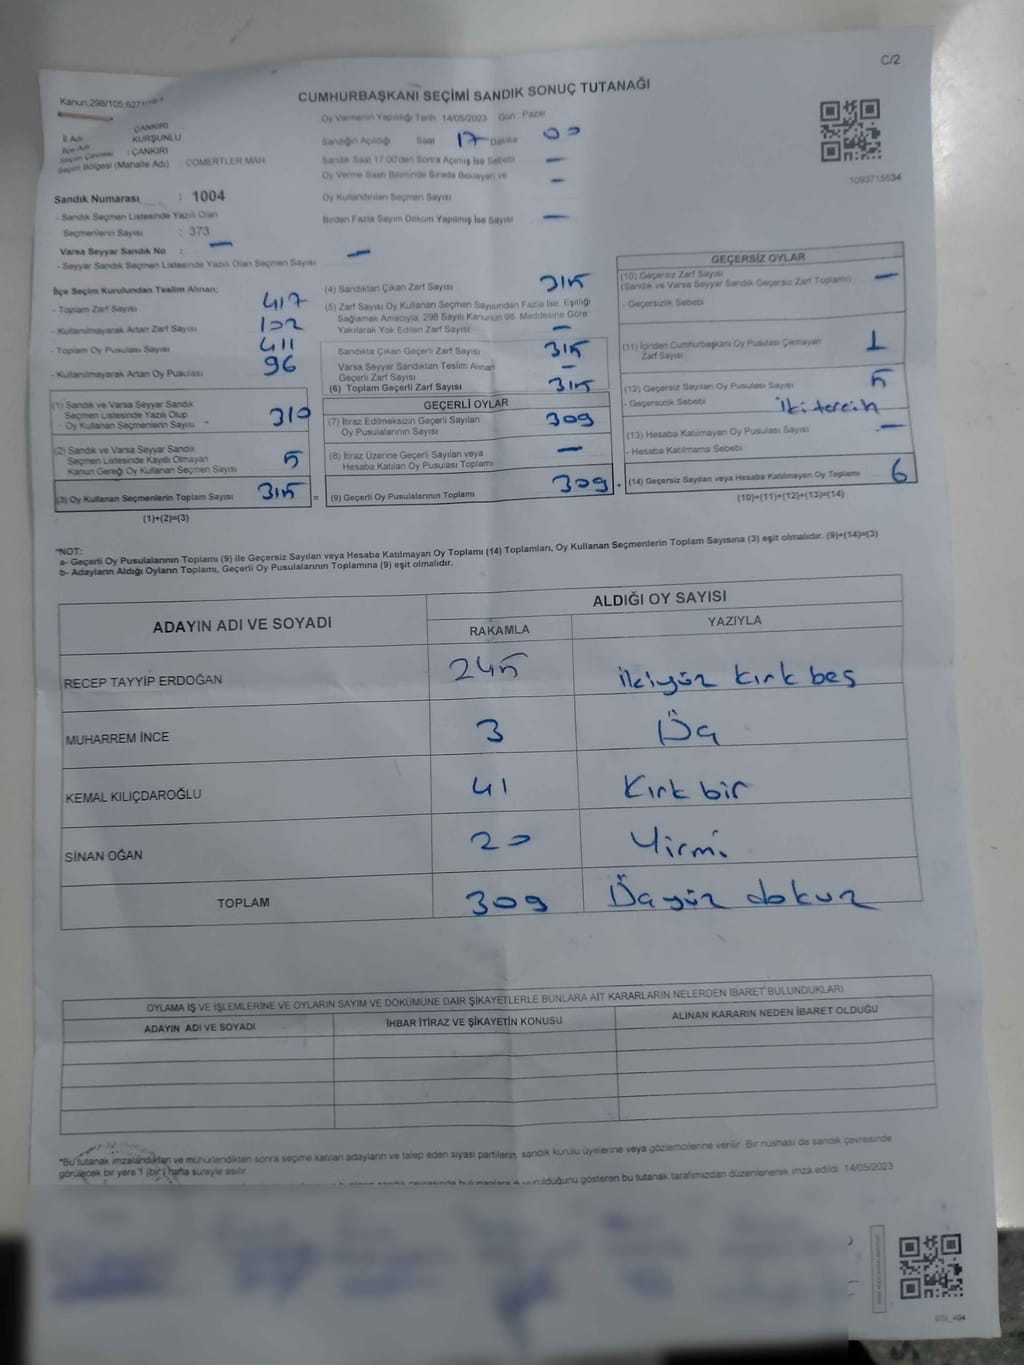 C/2
Kanun:298/105,627
CUMHURBAŞKANI SEÇİMİ SANDIK SONUÇ TUTANAĞI
İl Adı : ÇANKIRI
İlçe Adı : KURŞUNLU
Seçim Çevresi : ÇANKIRI
Seçim Bölgesi (Mahalle Adı) : CÖMERTLER MAH
Sandık Numarası : 1004
- Sandık Seçmen Listesinde Yazılı Olan
Seçmenlerin Sayısı : 373
Varsa Seyyar Sandık No : —
- Seyyar Sandık Seçmen Listesinde Yazılı Olan Seçmen Sayısı: —
Oy Vermenin Yapıldığı Tarih: 14/05/2023 Gün : Pazar
Sandığın Açıldığı Saat 17 Dakika 00
Sandık Saat 17:00'den Sonra Açılmış İse Sebebi —
Oy Verme Saati Bitiminde Sırada Bekleyen ve —
Oy Kullandırılan Seçmen Sayısı
Birden Fazla Sayım Döküm Yapılmış İse Sayısı —
1093715534
İlçe Seçim Kurulundan Teslim Alınan;
- Toplam Zarf Sayısı 417
- Kullanılmayarak Artan Zarf Sayısı 102
- Toplam Oy Pusulası Sayısı 411
- Kullanılmayarak Artan Oy Pusulası 96
(1) Sandık ve Varsa Seyyar Sandık
Seçmen Listesinde Yazılı Olup
- Oy Kullanan Seçmenlerin Sayısı 310
(2) Sandık ve Varsa Seyyar Sandık
Seçmen Listesinde Kayıtlı Olmayan
Kanun Gereği Oy Kullanan Seçmen Sayısı 5
(3) Oy Kullanan Seçmenlerin Toplam Sayısı 315 =
(1)+(2)=(3)
(4) Sandıktan Çıkan Zarf Sayısı 315
(5) Zarf Sayısı Oy Kullanan Seçmen Sayısından Fazla İse, Eşitliği
Sağlamak Amacıyla, 298 Sayılı Kanunun 98. Maddesine Göre
Yakılarak Yok Edilen Zarf Sayısı —
Sandıkta Çıkan Geçerli Zarf Sayısı 315
Varsa Seyyar Sandıktan Teslim Alınan
Geçerli Zarf Sayısı —
(6) Toplam Geçerli Zarf Sayısı 315
GEÇERLİ OYLAR
(7) İtiraz Edilmeksizin Geçerli Sayılan
Oy Pusulalarının Sayısı 309
(8) İtiraz Üzerine Geçerli Sayılan veya
Hesaba Katılan Oy Pusulası Toplamı —
(9) Geçerli Oy Pusulalarının Toplamı 309 +
GEÇERSİZ OYLAR
(10) Geçersiz Zarf Sayısı
(Sandık ve Varsa Seyyar Sandık Geçersiz Zarf Toplamı) —
- Geçersizlik Sebebi
(11) İçinden Cumhurbaşkanı Oy Pusulası Çıkmayan
Zarf Sayısı 1
(12) Geçersiz Sayılan Oy Pusulası Sayısı 5
- Geçersizlik Sebebi İki tercih
(13) Hesaba Katılmayan Oy Pusulası Sayısı —
- Hesaba Katılmama Sebebi
(14) Geçersiz Sayılan veya Hesaba Katılmayan Oy Toplamı 6
(10)+(11)+(12)+(13)=(14)
*NOT:
a- Geçerli Oy Pusulalarının Toplamı (9) ile Geçersiz Sayılan veya Hesaba Katılmayan Oy Toplamı (14) Toplamları, Oy Kullanan Seçmenlerin Toplam Sayısına (3) eşit olmalıdır. (9)+(14)=(3)
b- Adayların Aldığı Oyların Toplamı, Geçerli Oy Pusulalarının Toplamına (9) eşit olmalıdır.
ADAYIN ADI VE SOYADI ALDIĞI OY SAYISI
RAKAMLA YAZIYLA
RECEP TAYYİP ERDOĞAN 245 İkiyüz kırk beş
MUHARREM İNCE 3 Üç
KEMAL KILIÇDAROĞLU 41 Kırk bir
SİNAN OĞAN 20 Yirmi
TOPLAM 309 Üçyüz dokuz
OYLAMA İŞ VE İŞLEMLERİNE VE OYLARIN SAYIM VE DÖKÜMÜNE DAİR ŞİKAYETLERLE BUNLARA AİT KARARLARIN NELERDEN İBARET BULUNDUKLARI
ADAYIN ADI VE SOYADI İHBAR İTİRAZ VE ŞİKAYETİN KONUSU ALINAN KARARIN NEDEN İBARET OLDUĞU
*Bu tutanak imzalandıktan ve mühürlendikten sonra seçime katılan adayların ve talep eden siyasi partilerin, sandık kurulu üyelerine veya gözlemcilerine verilir. Bir nüshası da sandık çevresinde
görülecek bir yere 1 (bir) hafta süreyle asılır.
sandık çevresinde bulunanlara duyurulduğunu gösteren bu tutanak tarafımızdan düzenlenerek imza edildi. 14/05/2023